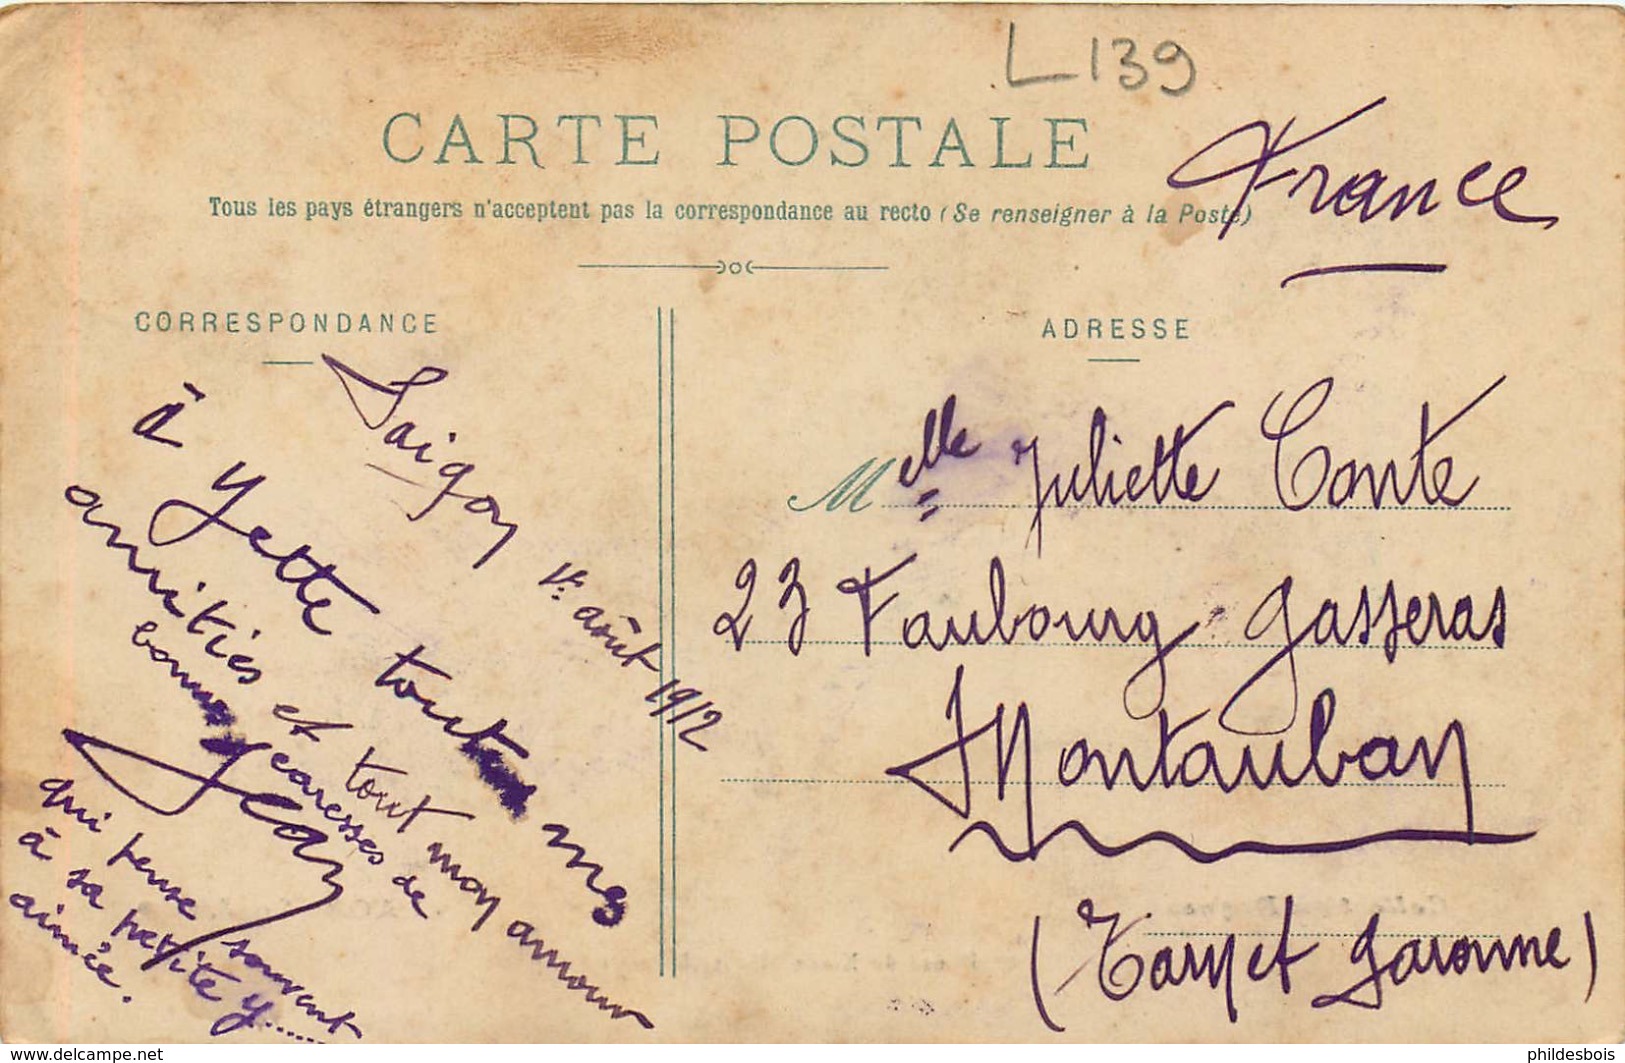 L139
CARTE POSTALE
France
Tous les pays étrangers n'acceptent pas la correspondance au recto (Se renseigner à la Poste)
CORRESPONDANCE
Saigon 1er août 1912
à Yette toutes mes
amitiés et tout mon amour
bonnes caresses de
Jean
qui pense souvent
à sa petite Y......
aimée.
ADRESSE
Melle Juliette Conte
23 Faubourg Gasseras
Montauban
(Tarn et Garonne)
www.delcampe.net
phildesbois